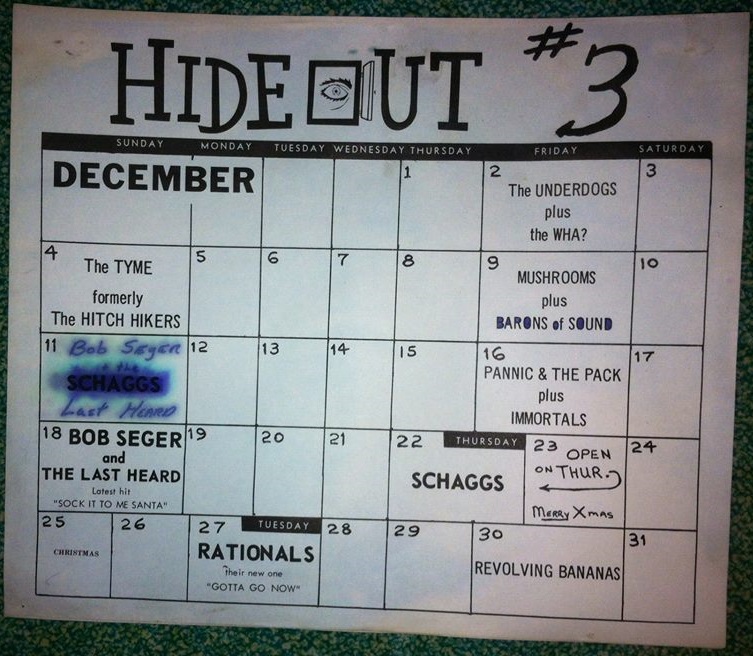 HIDEOUT #3
SUNDAY MONDAY TUESDAY WEDNESDAY THURSDAY FRIDAY SATURDAY
DECEMBER
1
2
The UNDERDOGS
plus
the WHA?
3
4
The TYME
formerly
The HITCH HIKERS
5
6
7
8
9
MUSHROOMS
plus
BARONS of SOUND
10
11
Bob Seger
+ the
SCHAGGS
Last HEARD
12
13
14
15
16
PANNIC & THE PACK
plus
IMMORTALS
17
18
BOB SEGER
and
THE LAST HEARD
Latest hit
"SOCK IT TO ME SANTA"
19
20
21
22
THURSDAY
SCHAGGS
23
OPEN
ON THUR.
MERRY XMAS
24
25
CHRISTMAS
26
27
TUESDAY
RATIONALS
their new one
"GOTTA GO NOW"
28
29
30
REVOLVING BANANAS
31